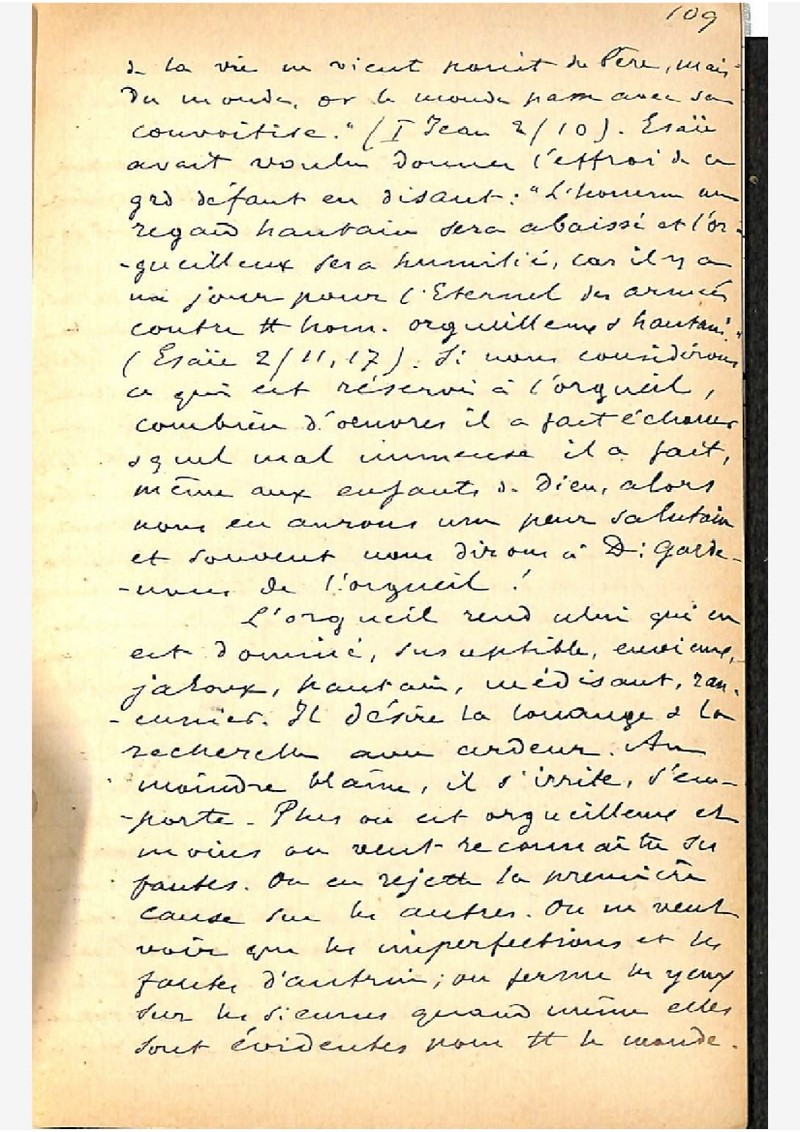 109
de la vie ne vient point du Père, mais
du monde, or le monde passe avec sa
convoitise." (I Jean 2/10). Esaïe
avait voulu donner l'effroi de ce
grd défaut en disant : "L'homme au
regard hautain sera abaissé et l'or-
-gueilleux sera humilié, car il y a
un jour pour l'Eternel des armées
contre tt hom. orgueilleux & hautain."
(Esaïe 2/11, 17). Si nous considérons
ce qui est réservé à l'orgueil,
combien d'oeuvres il a fait échouer
& quel mal immense il a fait,
même aux enfants de Dieu, alors
nous en aurons une peur salutaire
et souvent nous dirons à D : Garde-
-nous de l'orgueil !
L'orgueil rend celui qui en
est dominé, susceptible, envieux,
jaloux, hautain, médisant, ran-
-cunier. Il désire la louange & la
recherche avec ardeur. Au
moindre blâme, il s'irrite, s'em-
-porte. Plus on est orgueilleux et
moins on veut reconnaître ses
fautes. On en rejette la première
cause sur les autres. On ne veut
voir que les imperfections et les
fautes d'autrui ; on ferme les yeux
sur les siennes quand même elles
sont évidentes pour tt le monde.